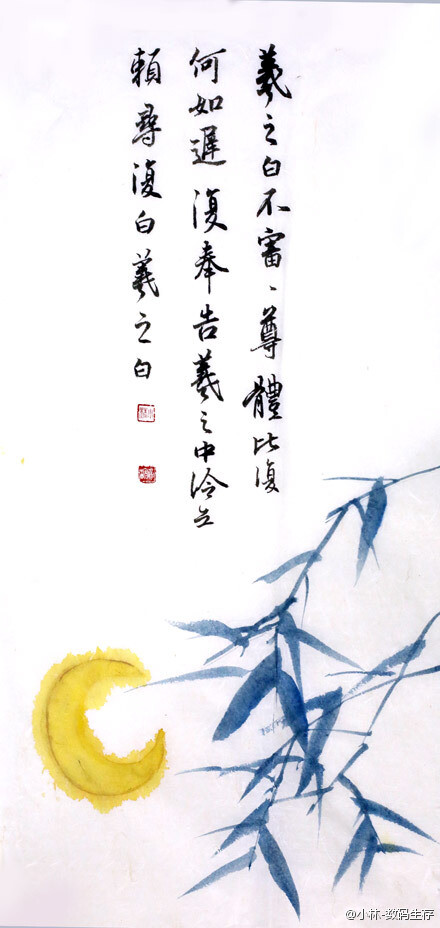 羲之白不審、尊體比復
何如遲復奉告羲之中冷無
賴尋復白羲之白
@小林-数码生存